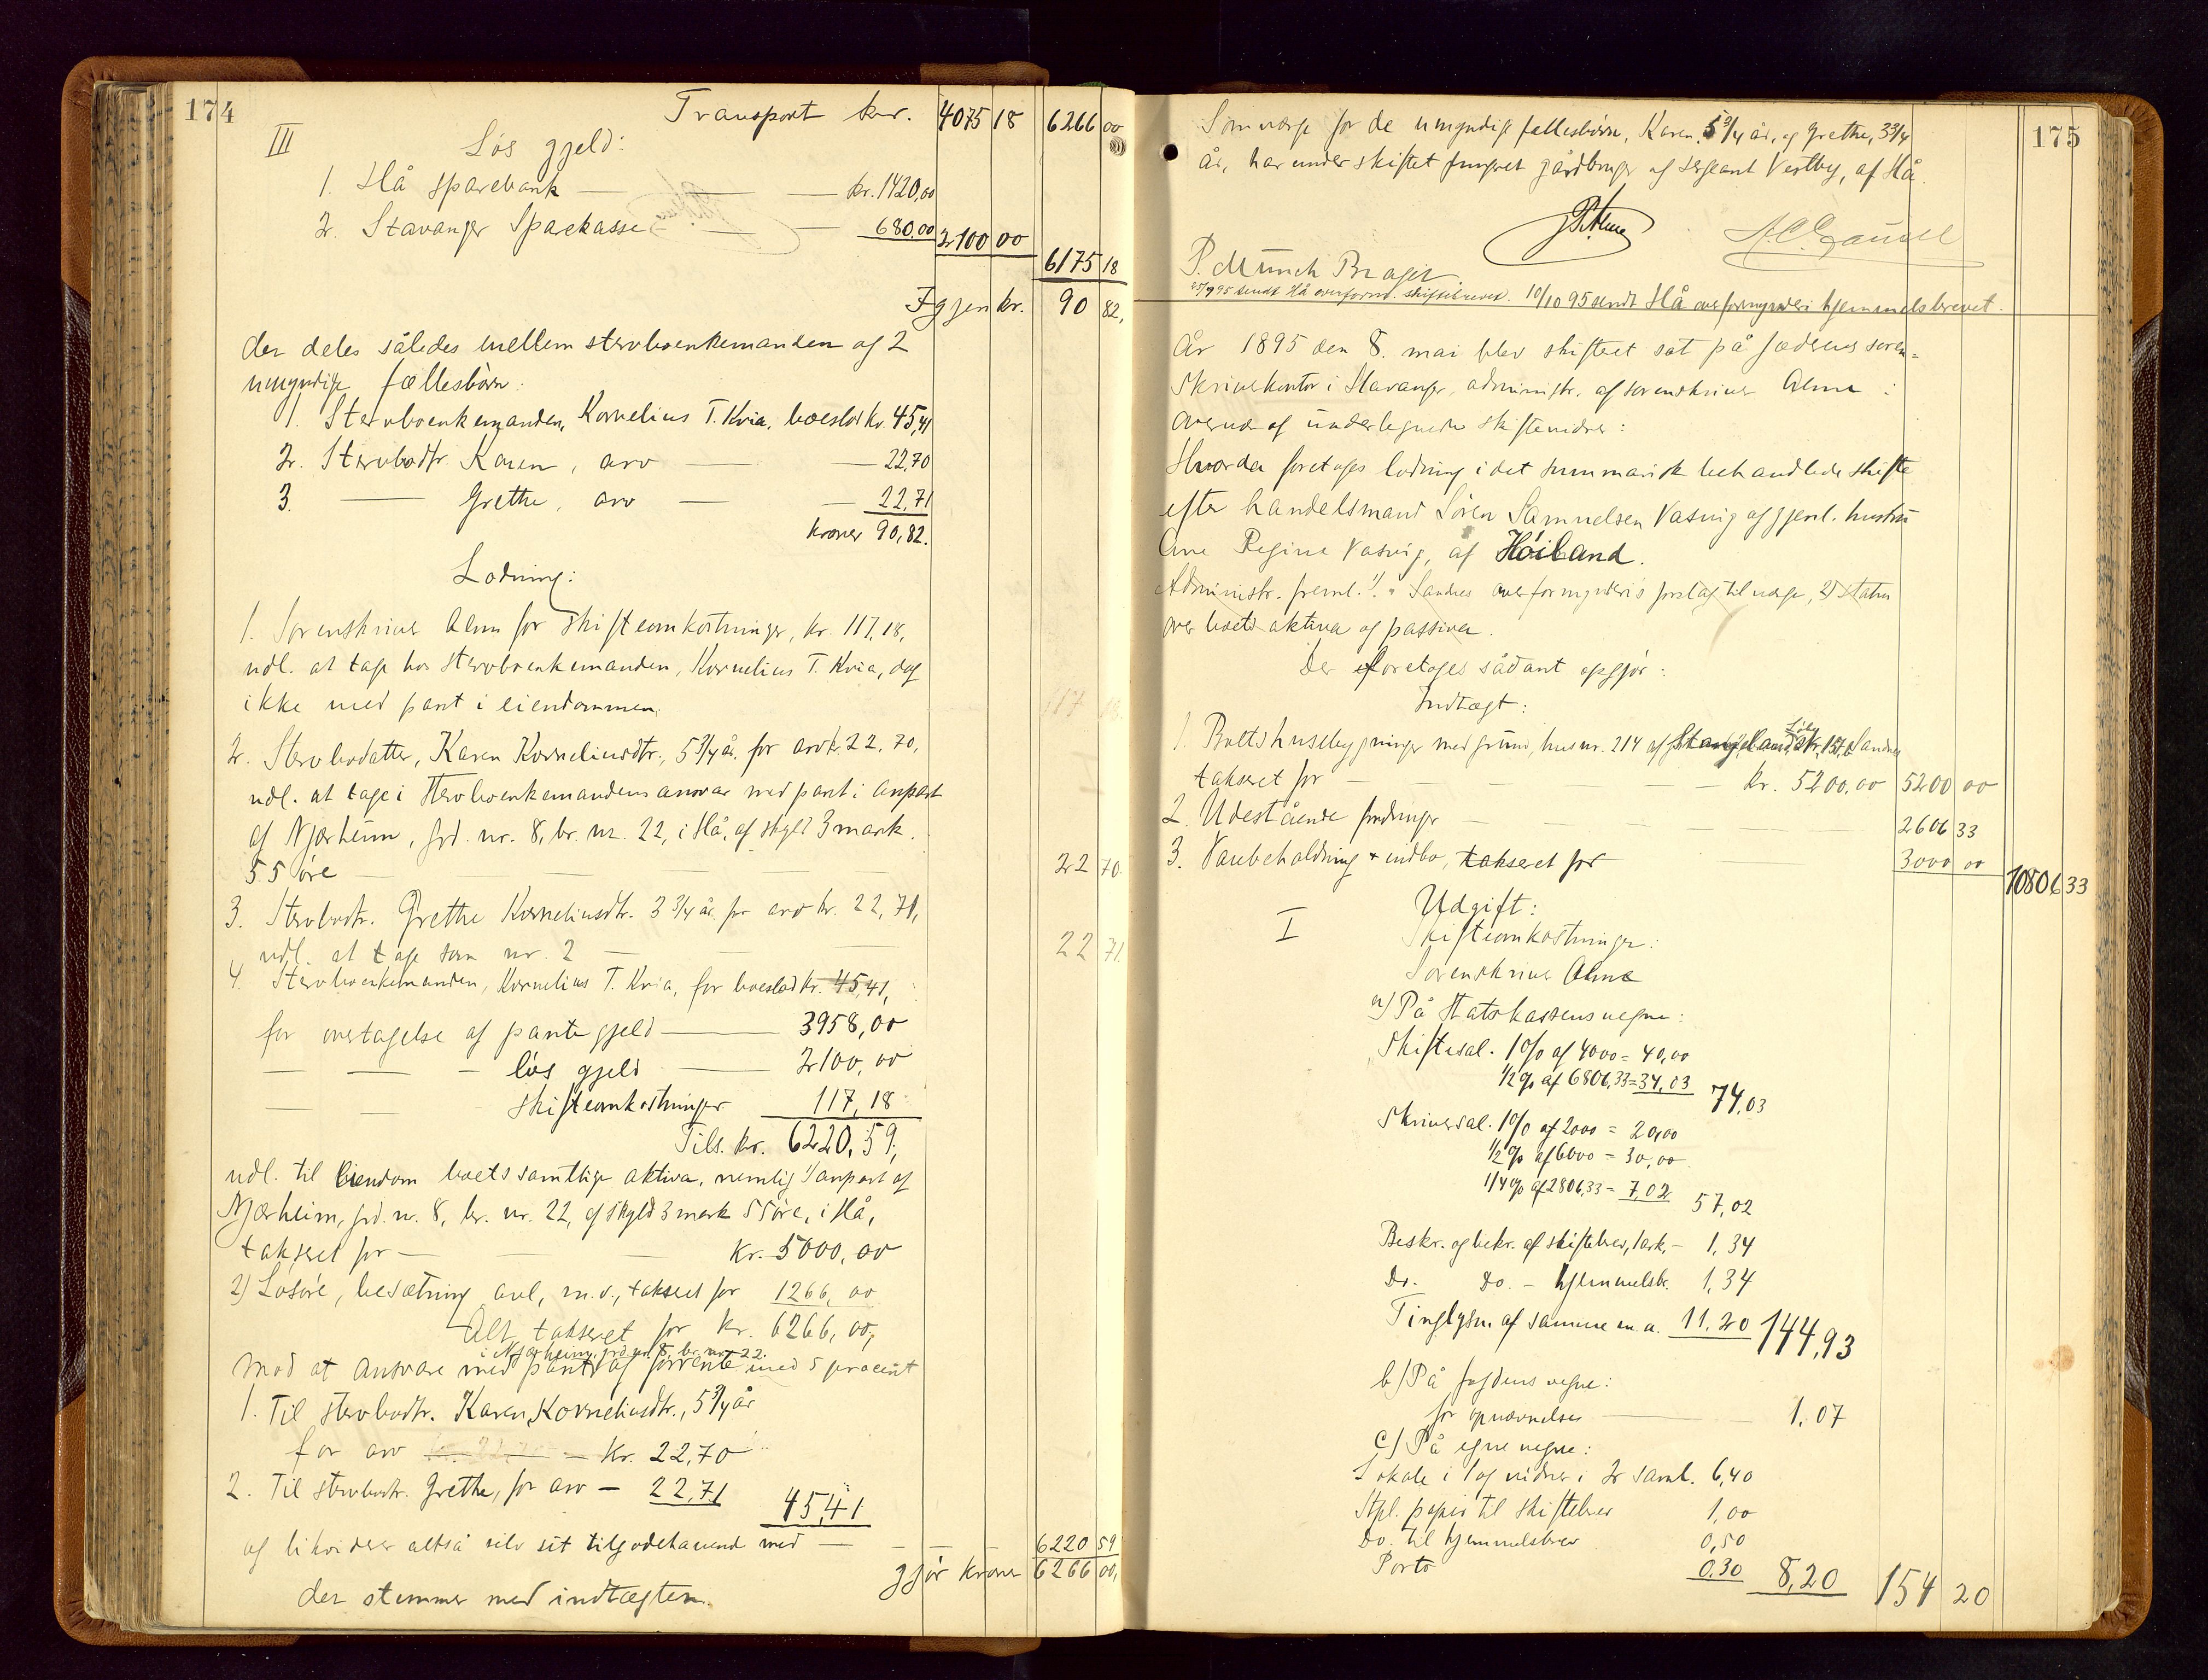 174
Transport kr. 4075 18 6266 00
III
Lös gjeld:
1. Hå sparebank — kr. 1420,00
2. Stavanger Sparekasse — 680,00 2100 00
6175 18
Igjen kr. 90 82,
der deles således mellem stervboenkemanden og 2
umyndige fællesbörn:
1. Stervboenkemanden, Kornelius T. Kvia, boeslod kr. 45,41
2. Stervbodtr. Karen, arv — 22,70
3. — Grethe, arv — 22,71
kroner 90,82.
Lodning:
1. Sorenskriver Alme for skifteomkostninger, kr. 117,18,
udl. at tage hos stervboenkemanden, Kornelius T. Kvia, dog
ikke med pant i eiendommen.
117 18
2. Stervbodatter, Karen Korneliusdtr., 5 3/4 år for arv kr. 22,70,
udl. at tage i stervboenkemandens ansvar med pant i anpart
af Njærheim, grd. nr. 8, br. nr. 22, i Hå, af skyld 3 mark
55 öre — 22 70.
3. Stervbodtr. Grethe Korneliusdtr. 3 3/4 år for arv kr. 22,71,
udl. at tage som nr. 2 — 22 71.
4. Stervboenkemanden, Kornelius T. Kvia, for boeslod kr. 45,41,
for overtagelse af pantegjeld — 3958,00
— — — lös gjeld — 2100,00
— — skifteomkostninger 117,18
Tils. kr. 6220,59,
udl. til eiendom boets samtlige aktiva, nemlig 1) anpart af
Njærheim, grd. nr. 8, br. nr. 22, af skyld 3 mark 55 öre, i Hå,
takseret for — kr. 5000,00
2) Lösöre, besætning, avl, m.v., takseret for 1266,00
Alt takseret for kr. 6266,00,
i Njærheim, grd. nr. 8, br. nr. 22.
mod at ansvare med pant og forrente med 5 procent
1. Til stervbodtr. Karen Korneliusdtr., 5 3/4 år
for arv — kr. 22,70
2. Til stervbodtr. Grethe, for arv — 22,71 45,41
og likviderer altså selv sit tilgodehavende med — 6220 59
gjør kroner 6266 00,
der stemmer med indtægten.
175
Som værge for de umyndige fællesbörn, Karen, 5 3/4 år, og Grethe, 3 3/4
år, har under skiftet fungeret gårdbruger og sergeant Vestby, af Hå.
P. Munch
25/9 95 sendt Hå overformd. skiftebrevet. 10/10 95 sendt Hå overformynderi hjemmelsbrevet.
År 1895 den 8. mai blev skifteret sat på Jæderens soren-
skriverkontor i Stavanger, administr. af sorenskriver Alme
overvær af undertegnede skiftevidner:
Hvorda foretages lodning i det summarisk behandlede skifte
efter handelsmand Sören Samuelsen Vasvig og gjenl. hustru
Ane Regine Vasvig, af Höiland.
Administr. freml. 1. Sandnes overformynderis forslag til værge, 2) status
over boets aktiva og passiva.
Der foretages sådant opgjør:
Indtægt:
1. Boets husebygninger med grund, hus nr. 214 af Stangeland, Sandnes
takseret for — kr. 5200,00 5200 00
2. Udestående fordringer — 2606 33
3. Varebeholdning & indbo, takseret for — 3000 00
10806 33
Udgift:
I Skifteomkostninger:
Sorenskriver Alme
a) På statskassens vegne:
Skiftesal. 1 0/0 af 4000 = 40,00
1/2 % af 6806,33 = 34,03 74,03
Skriversal. 1 0/0 af 2000 = 20,00
1/2 % af 6000 = 30,00
1/4 % af 2806,33 = 7,02 57,02
Beskr. og bekr. af skiftebrev, 1 ark, — 1,34
Do. Do. — hjemmelsbr. 1,34
Tinglysn. af samme m.a. 11.20 144,93
b) På fogdens vegne:
for opnævnelser — 1,07
c) På egne vegne:
Lokale i 1 og vidner i 2 saml. 6,40
Stpl. papir til skiftebrev 1,00
Do. til hjemmelsbrev 0,50
Porto 0,30 8,20 154 20